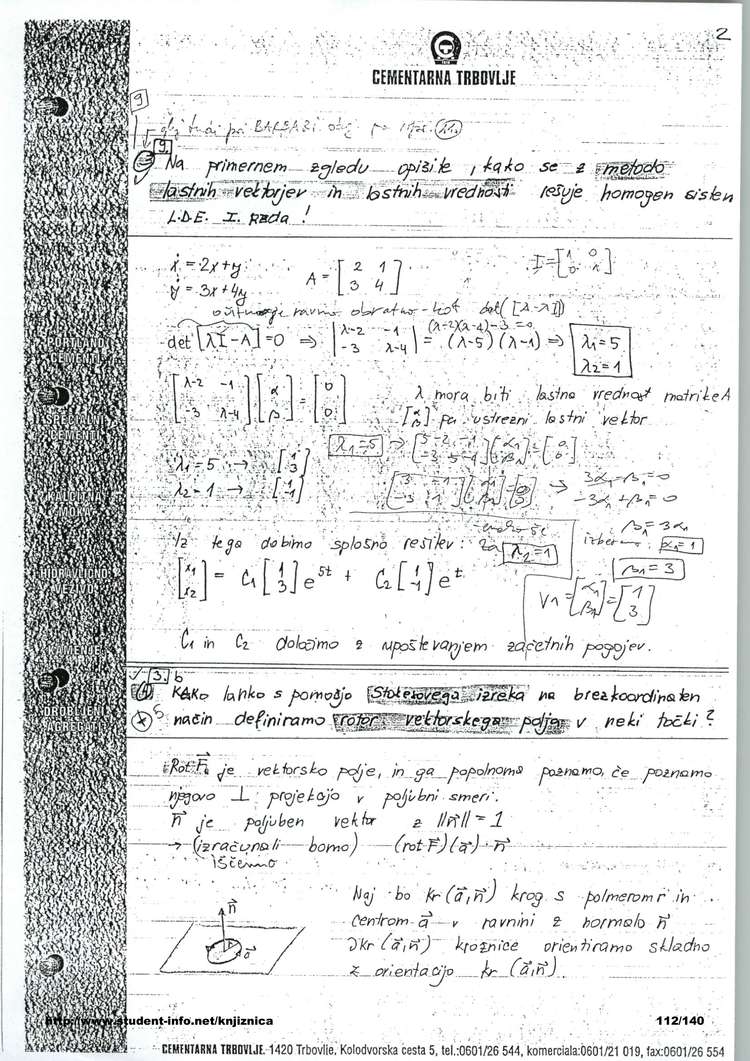 2
CEMENTARNA TRBOVLJE
9
9.
Na primernem zgledu opišite, kako se z metodo
lastnih vektorjev in lastnih vrednosti rešuje homogen sistem
L.D.E. I. reda!
ẋ = 2x+y
ẏ = 3x+4y
A = [2 1; 3 4]
I = [1 0; 0 1]
ravno obratno kot det([A-λI])
det [λI-A] = 0 ⇒ |λ-2 -1; -3 λ-4| = (λ-2)(λ-4)-3=0 (λ-5)(λ-1) ⇒ λ1=5 λ2=1
[λ-2 -1; -3 λ-4] [α; β] = [0; 0]
λ mora biti lastna vrednost matrike A
[α; β] pa ustrezni lastni vektor
λ1=5 ⇒ [5-2 -1; -3 5-4] [α1; β1] = [0; 0]
λ1=5 → [1; 3]
λ2=1 → [1; -1]
[3 -1; -3 1] [α1; β1] = [0; 0] ⇒ 3α1-β1=0
-3α1+β1=0
β1=3α1
Iz tega dobimo splošno rešitev:
za λ2=1
α1=1
β1=3
[x1; x2] = C1 [1; 3] e^5t + C2 [1; -1] e^t
V1=[α1; β1]=[1; 3]
C1 in C2 določimo z upoštevanjem začetnih pogojev.
3. b
Kako lahko s pomočjo Stokesovega izreka na brezkoordinaten
način definiramo rotor vektorskega polja v neki točki?
Rot F⃗ je vektorsko polje, in ga popolnoma poznamo, če poznamo
njegovo ⊥ projekcijo v poljubni smeri.
n⃗ je poljuben vektor z ||n⃗|| = 1
→ (izračunali bomo) (rot F⃗)(a⃗)·n⃗
iščemo
Naj bo Kr(a⃗,n⃗) krog s polmerom r in
centrom a⃗ v ravnini z normalo n⃗
∂Kr(a⃗,n⃗) krožnice orientiramo skladno
z orientacijo Kr(a⃗,n⃗).
n⃗
a⃗
http://www.student-info.net/knjiznica
112/140
CEMENTARNA TRBOVLJE, 1420 Trbovlje, Kolodvorska cesta 5, tel.:0601/26 544, komerciala:0601/21 019, fax:0601/26 554